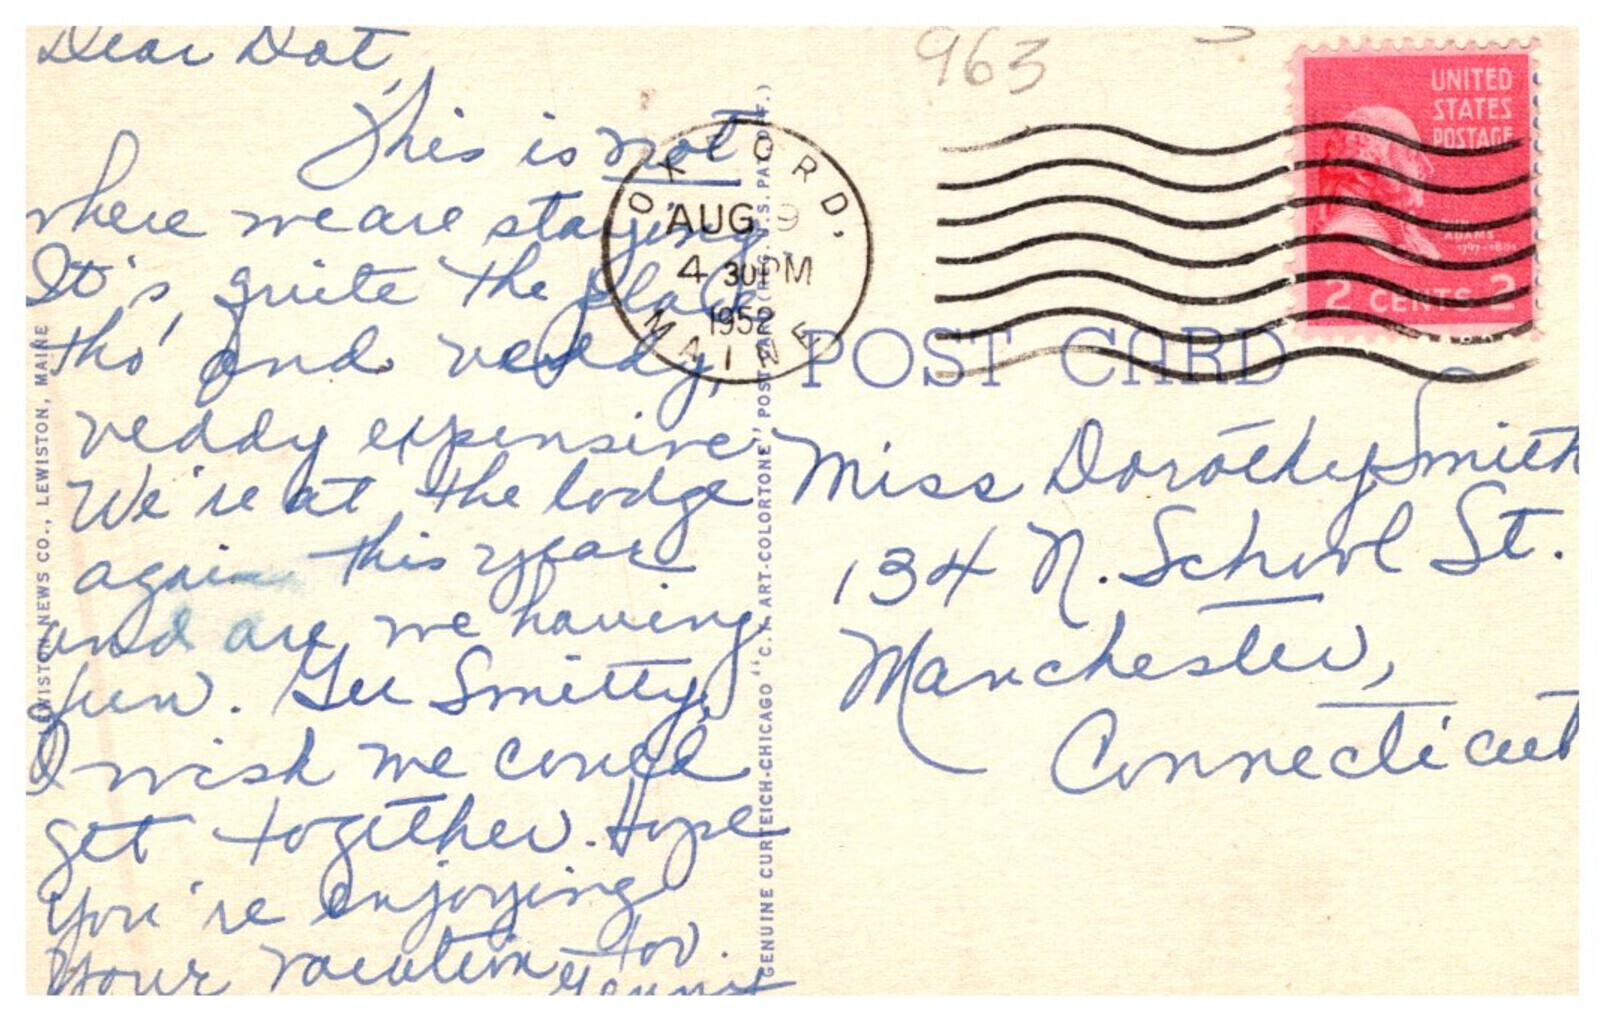 Dear Dot,
This is not
where we are staying.
It's quite the place
tho' and veddy,
veddy expensive.
We're at the lodge
again this year
and are we having
fun. Gee Smitty,
I wish we could
get together. Hope
you're enjoying
your vacation too.
963
OXFORD,
AUG 9
4 30 PM
1952
MAINE
UNITED
STATES
POSTAGE
JOHN
ADAMS
1797-1801
2 CENTS 2
POST CARD
Miss Dorothy Smith
134 N. School St.
Manchester,
Connecticut
LEWISTON NEWS CO., LEWISTON, MAINE
GENUINE CURTEICH-CHICAGO "C.T. ART-COLORTONE" POST CARD (REG. U.S. PAT. OFF.)